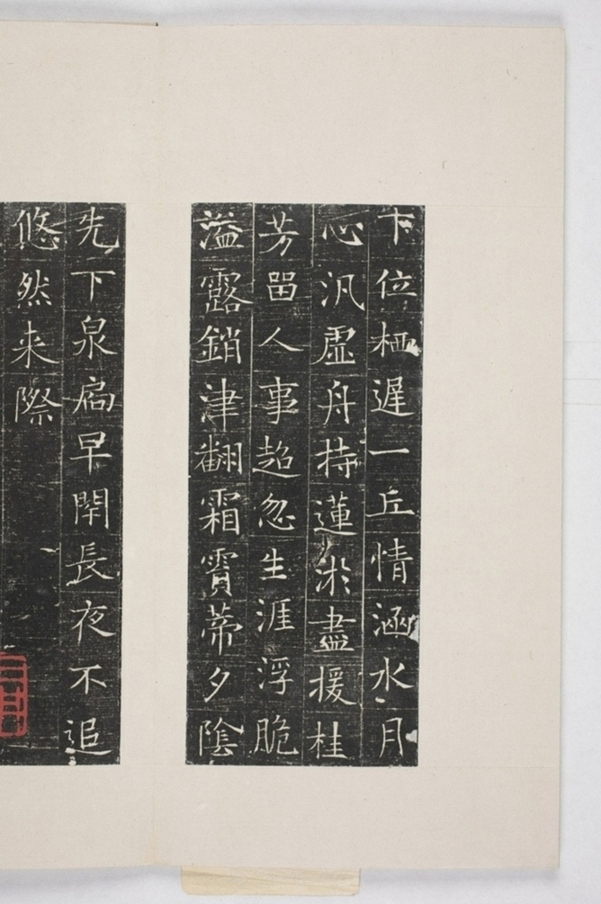 下位栖遲一丘情涵水月
心汎虛舟持蓮盡援桂
芳留人事超忽生涯浮脆
溢露銷津翻霜霣蒂夕陰
先下泉扃早閇長夜不追
悠然来際